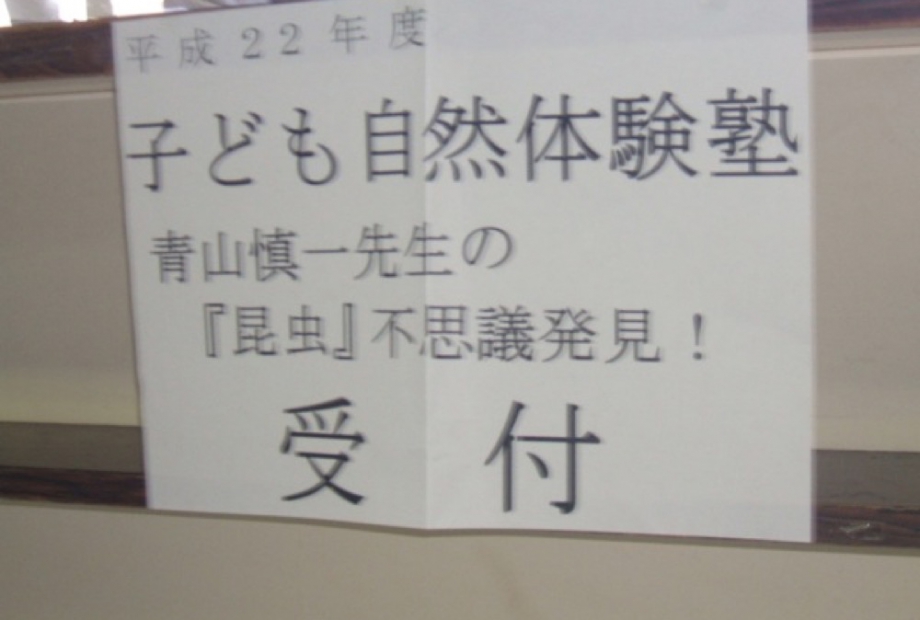 平成22年度
子ども自然体験塾
青山慎一先生の
『昆虫』不思議発見！
受付